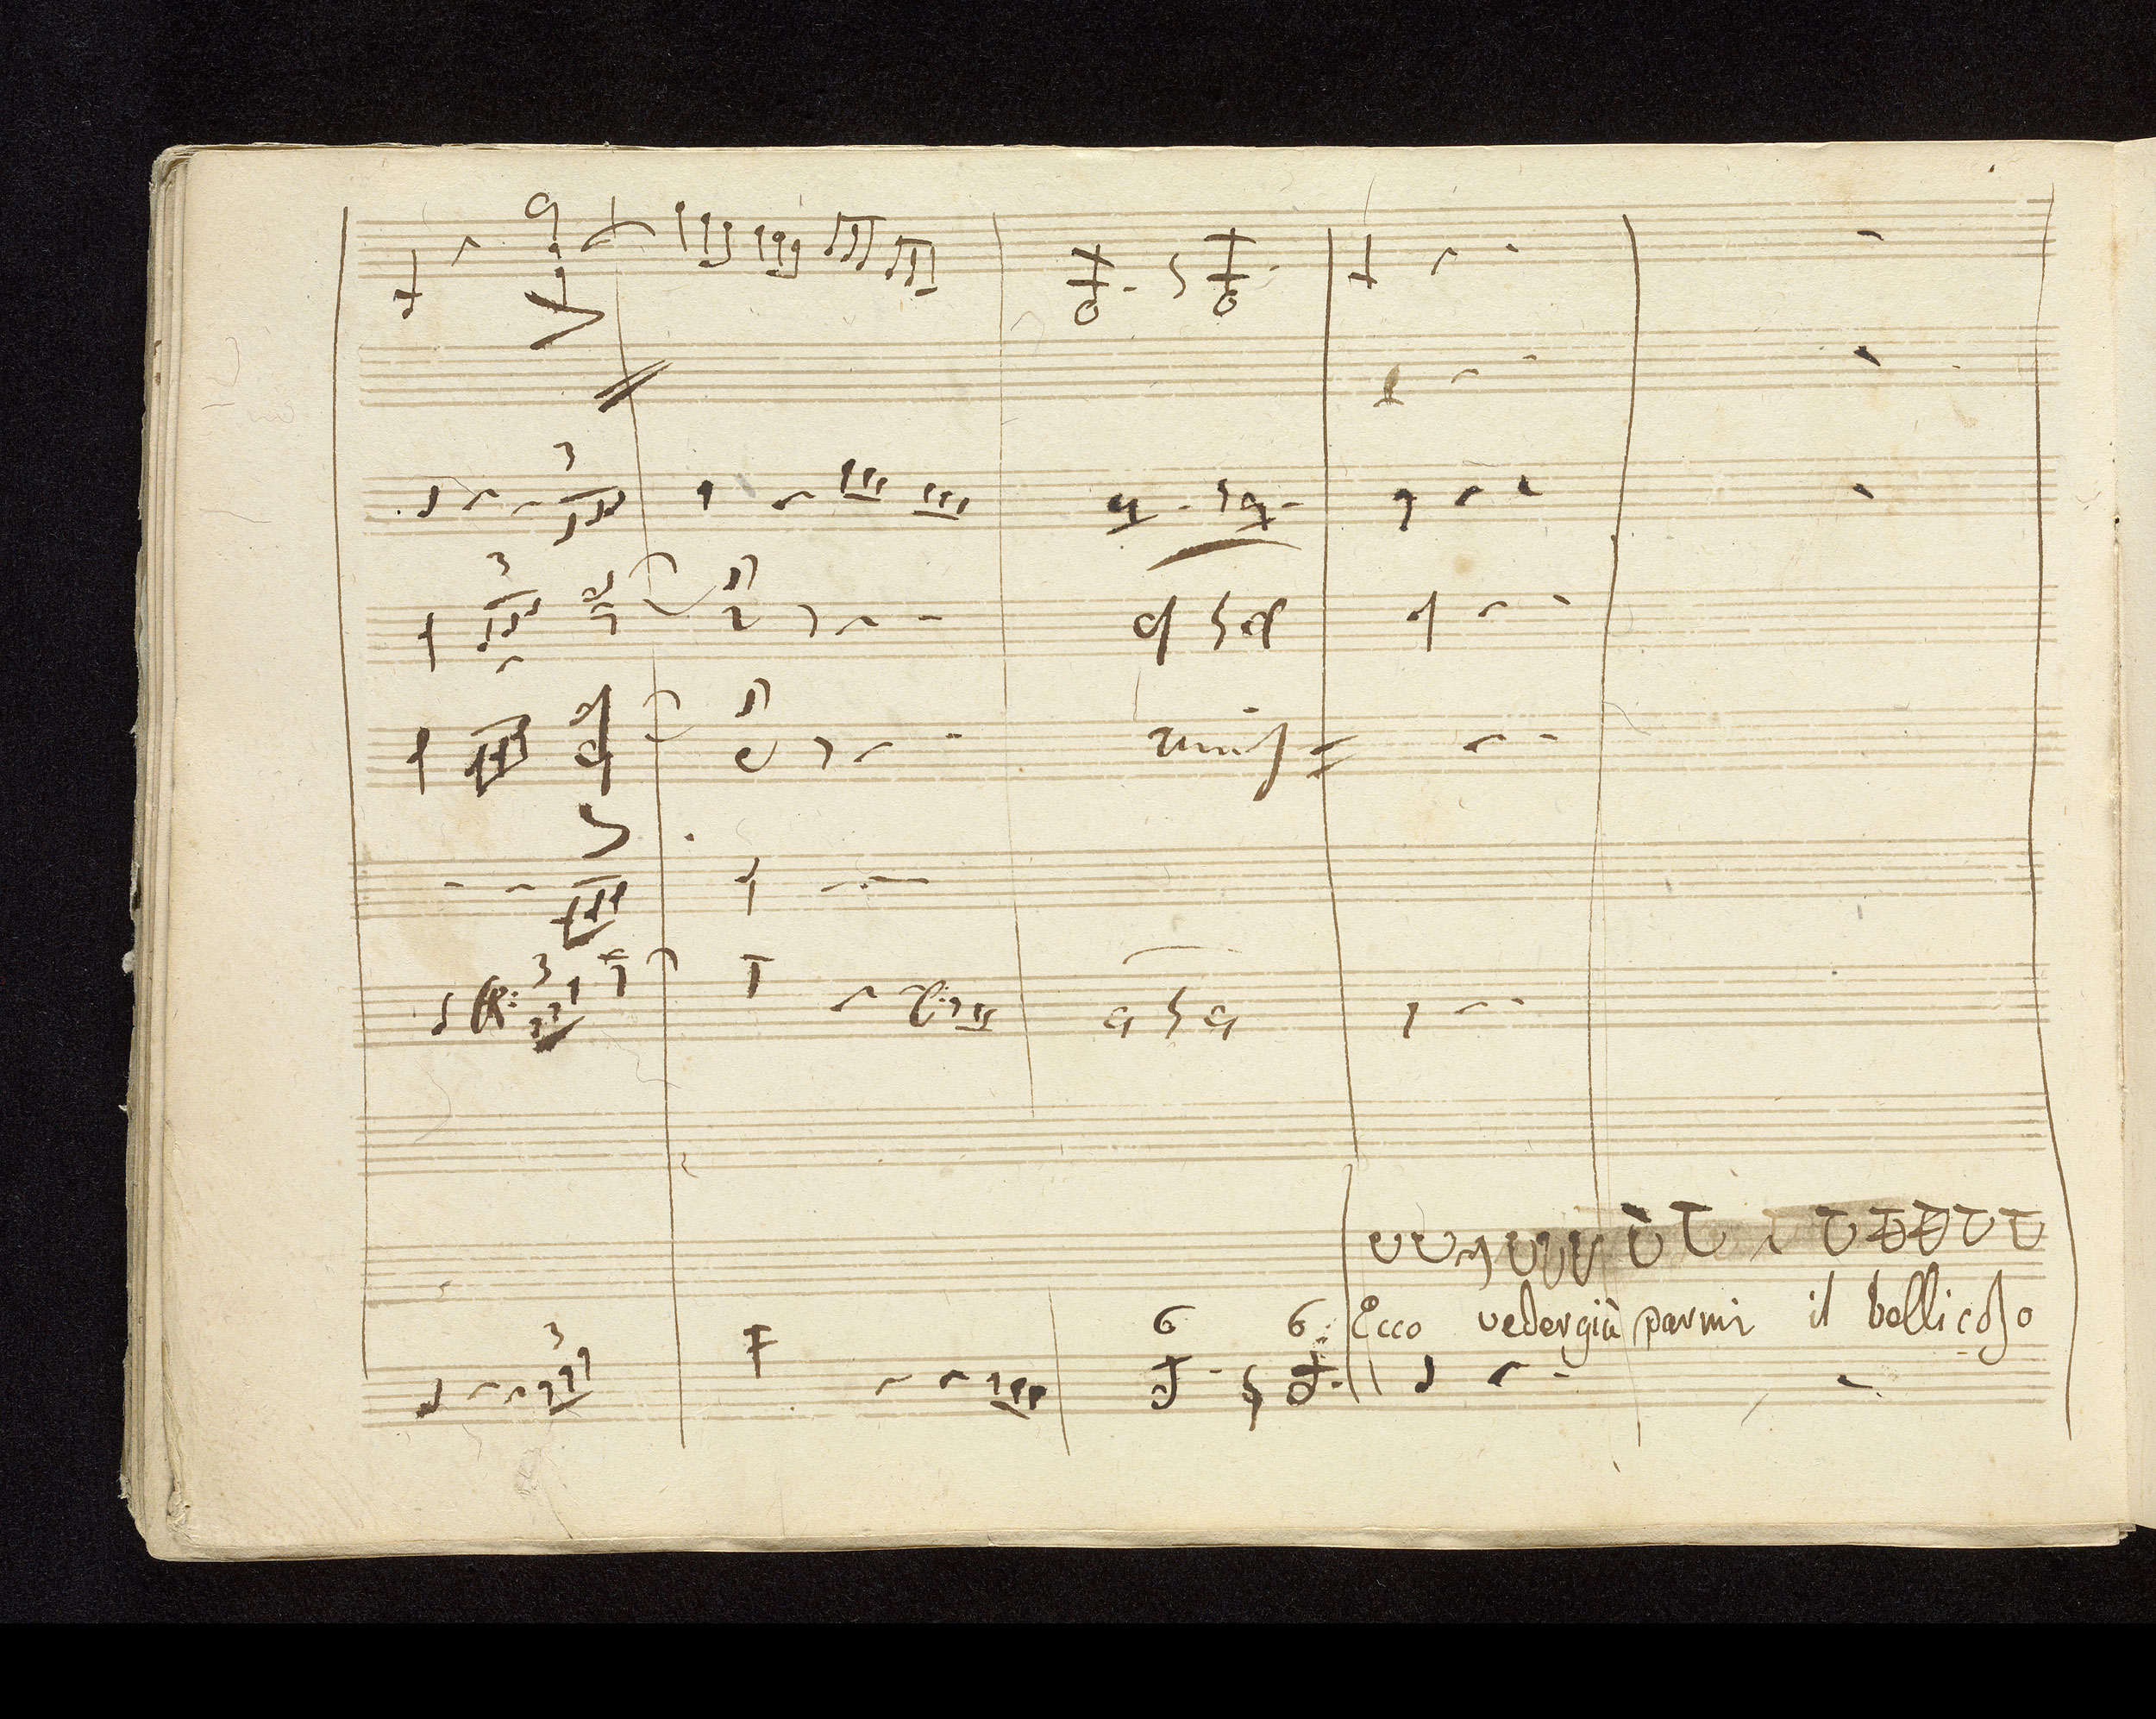 3
3
unis
3
6 6
Ecco veder già parmi il bellicoso
3